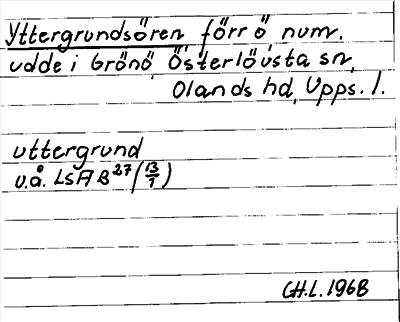 Yttergrundsören förr ö numr.
udde i Grönö, Österlövsta sn,
Olands hd, Upps. l.
uttergrund
u.å. LSA B 27 (13/1)
CH.L. 1968